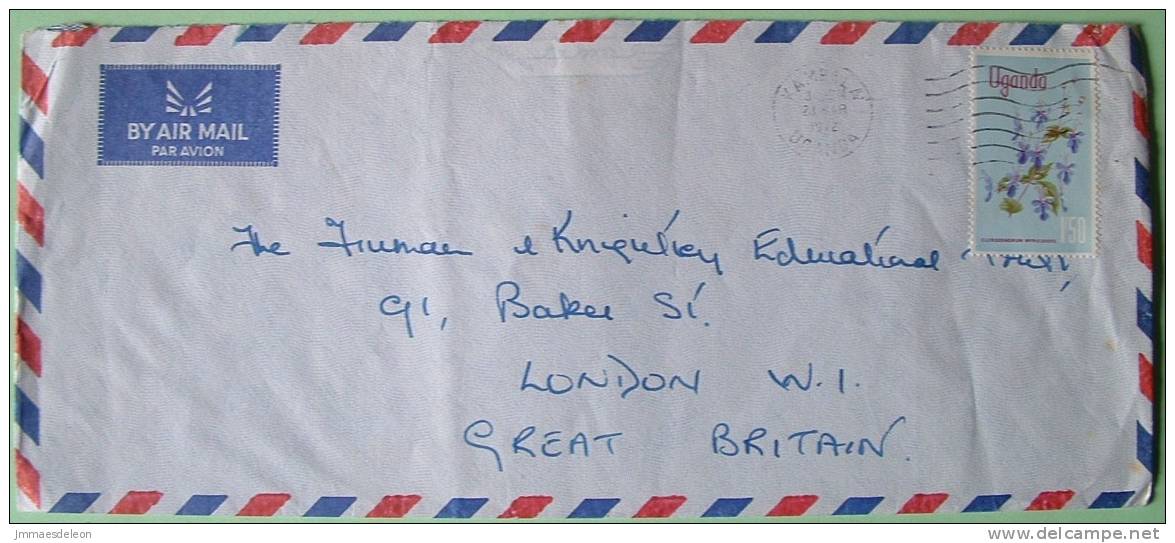 BY AIR MAIL
PAR AVION
KAMPALA
1972
UGANDA
Uganda
1'50
The Truman & Knightley Educational Trust,
91, Baker St.
LONDON W.1.
GREAT BRITAIN.
jmmaesdeleon
delcampe.net